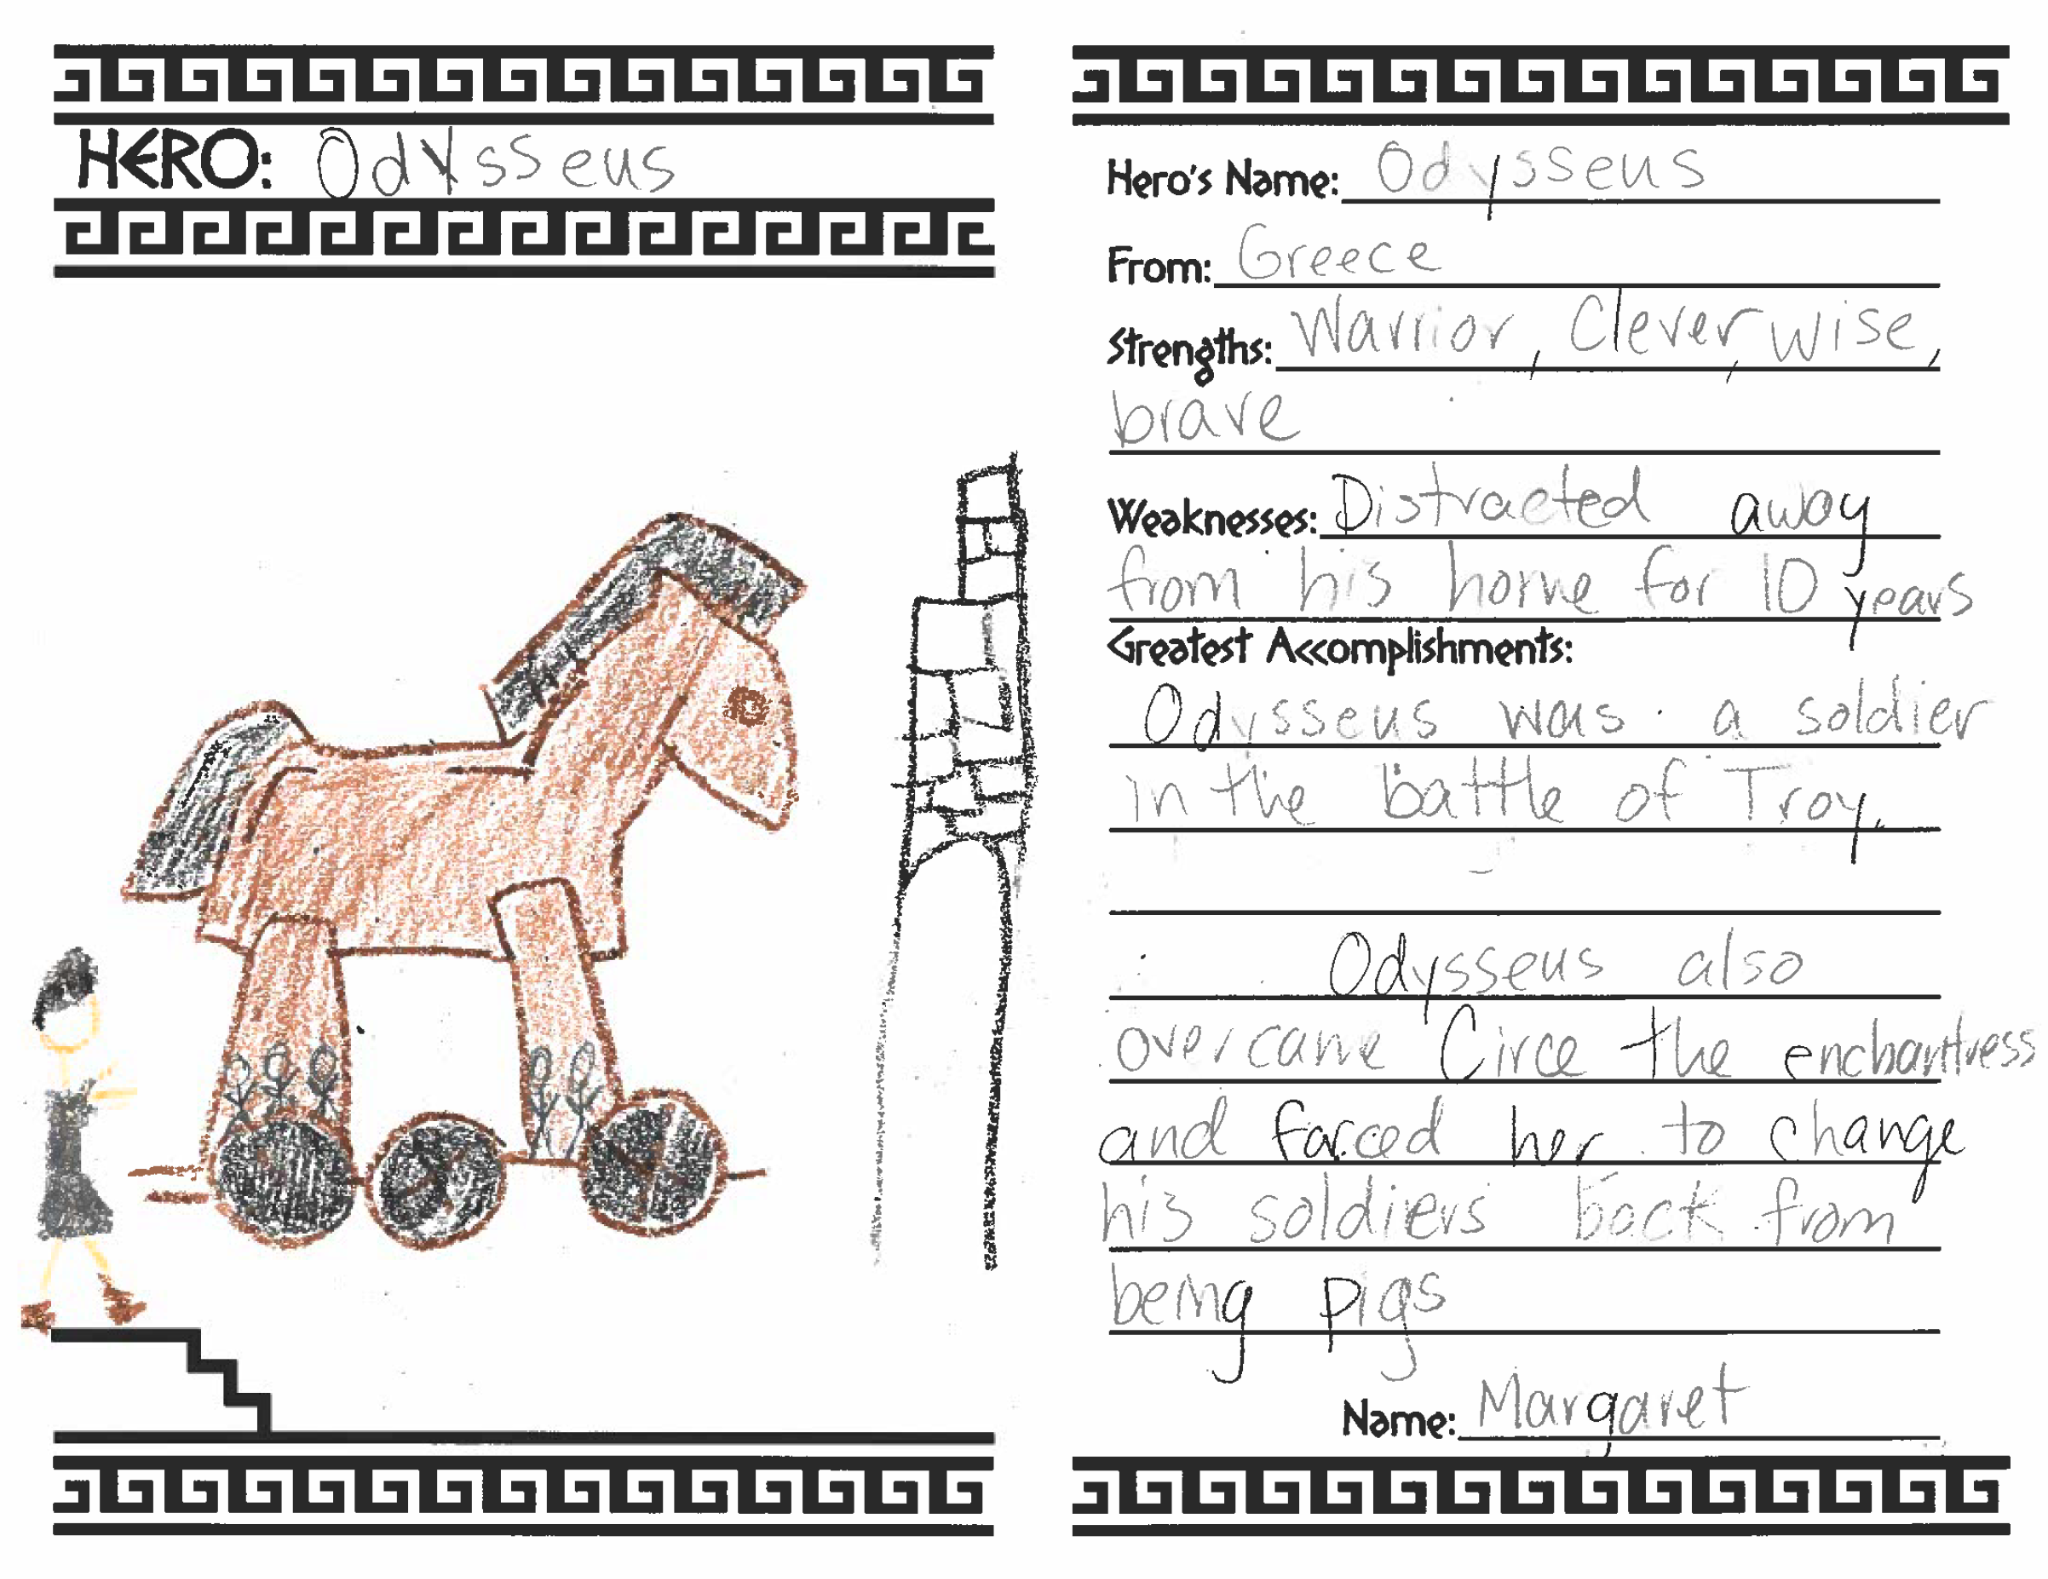 HERO: Odysseus
Hero's Name: Odysseus
From: Greece
Strengths: Warrior, Clever, wise,
brave
Weaknesses: Distracted away
from his home for 10 years
Greatest Accomplishments:
Odysseus was a soldier
in the battle of Troy.
Odysseus also
overcame Circe the enchantress
and forced her to change
his soldiers back from
being pigs
Name: Margaret